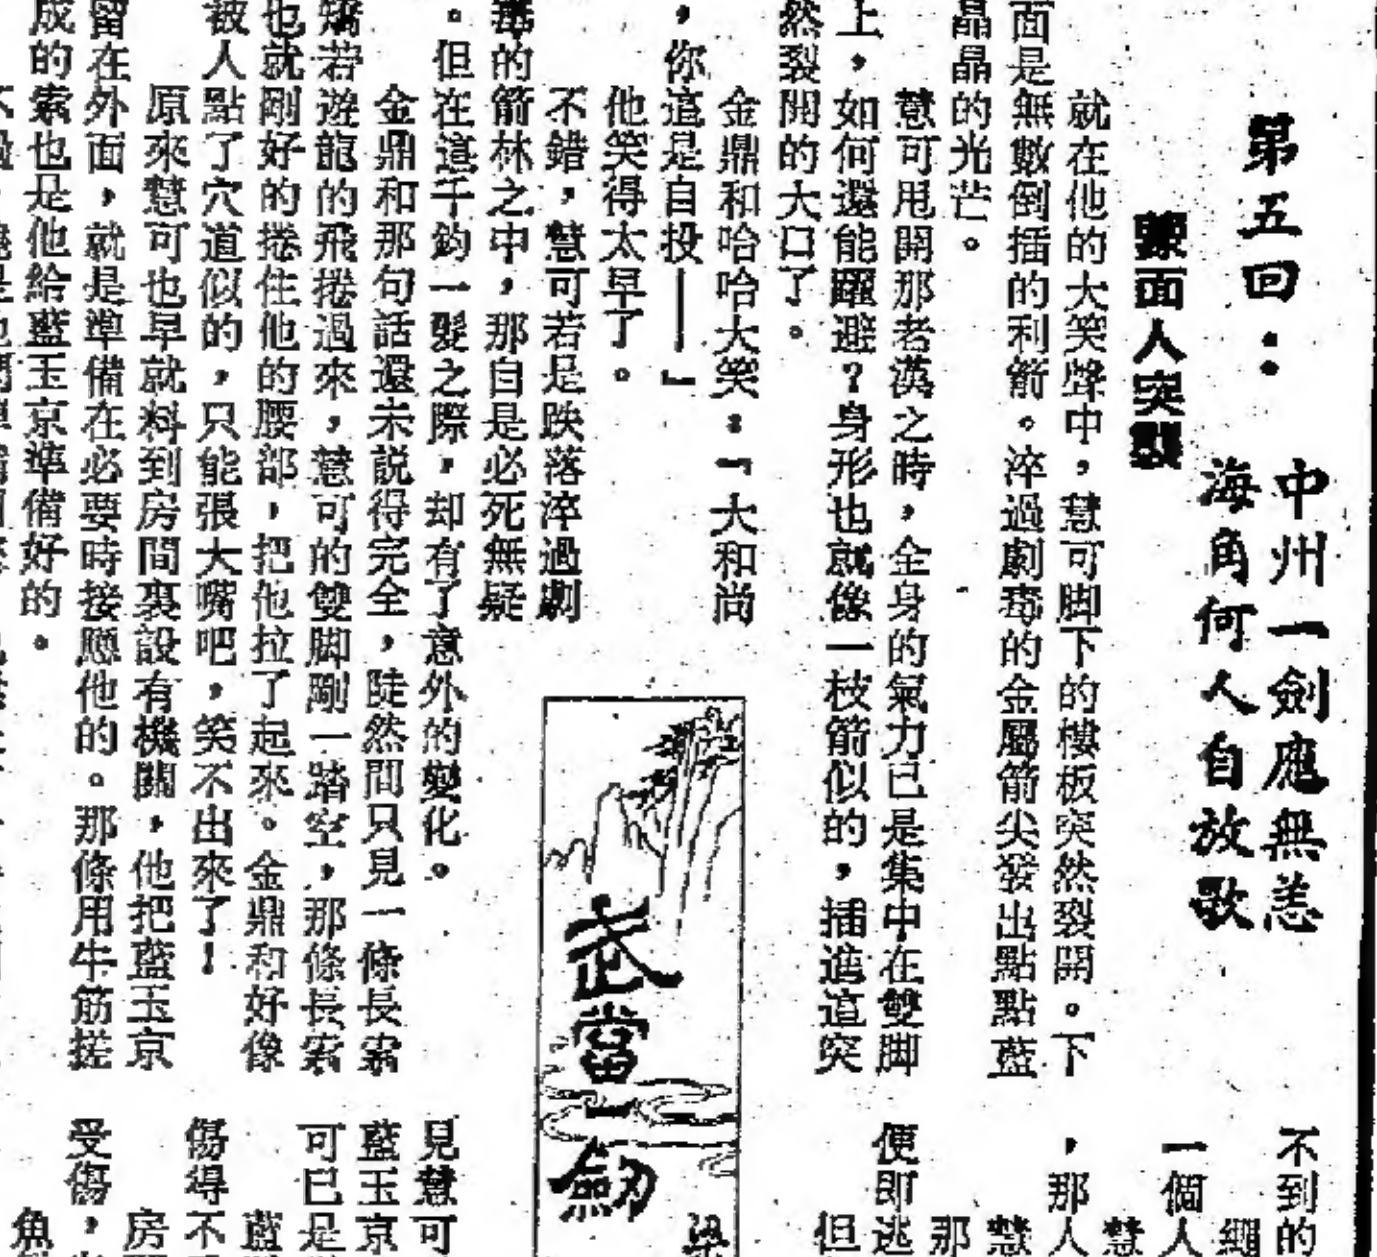 第五回：
中州一劍應無恙
海角何人自放歌
蒙面人突襲
就在他的大笑聲中，慧可脚下的樓板突然裂開。下
面是無數倒插的利箭。淬過劇毒的金屬箭尖發出點點藍
晶晶的光芒。
慧可甩開那老漢之時，全身的氣力已是集中在雙脚
上，如何還能躍避？身形也就像一枝箭似的，插進這突
然裂開的大口了。
金鼎和哈哈大笑：「大和尚
，你這是自投——」
他笑得太早了。
不錯，慧可若是跌落淬過劇
毒的箭林之中，那自是必死無疑
。但在這千鈞一髮之際，却有了意外的變化。
金鼎和那句話還未說得完全，陡然間只見一條長索
矯若遊龍的飛捲過來，慧可的雙脚剛一踏空，那條長索
也就剛好的捲住他的腰部，把他拉了起來。金鼎和好像
被人點了穴道似的，只能張大嘴吧，笑不出來了！
原來慧可也早就料到房間裏設有機關，他把藍玉京
留在外面，就是準備在必要時接應他的。那條用牛筋搓
成的索也是他給藍玉京準備好的。
武當一劍
梁
不到的
繩
一個人
慧
，那人
慧
那
便即逃
但
見慧可
藍玉京
可已是
藍
傷得不
房
受傷，
魚